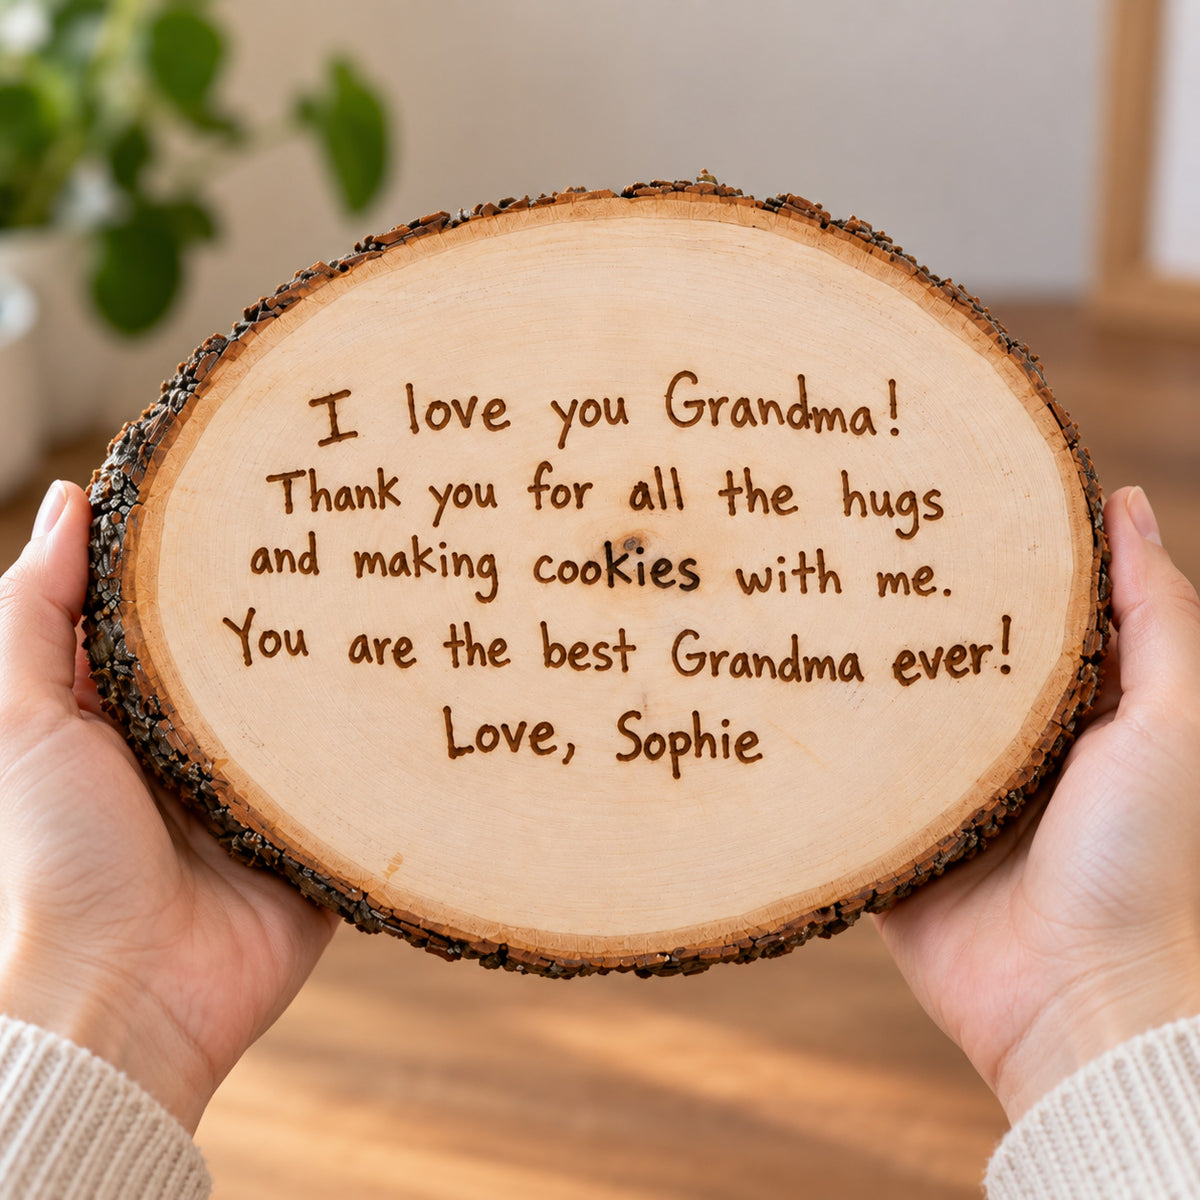 I love you Grandma!
Thank you for all the hugs
and making cookies with me.
You are the best Grandma ever!
Love, Sophie